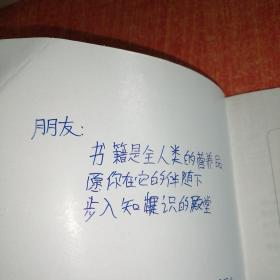 朋友:
书籍是全人类的营养品
愿你在它的伴随下
步入知识的殿堂